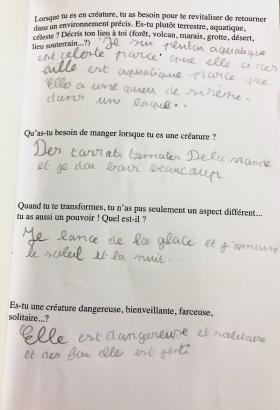 Lorsque tu es en créature, tu as besoin pour te revitaliser de retourner
dans un environnement précis. Es-tu plutôt terrestre, aquatique,
céleste ? Décris ton lieu à toi (forêt, volcan, marais, grotte, désert,
lieu souterrain...?) Je sui aquatique
est celeste parce que elle a des
aille est aquatique parce que
Elle a une queu de sirène.
dans un laque..
Qu'as-tu besoin de manger lorsque tu es une créature ?
Des carrats tomates De la viande
et je doi boir beaucoup
Quand tu te transformes, tu n'as pas seulement un aspect différent...
tu as aussi un pouvoir ! Quel est-il ?
Je lance de la glace et
le soleil et la nuit..
Es-tu une créature dangereuse, bienveillante, farceuse,
solitaire...?
Elle est dangereuse et solitaire
et des elles est